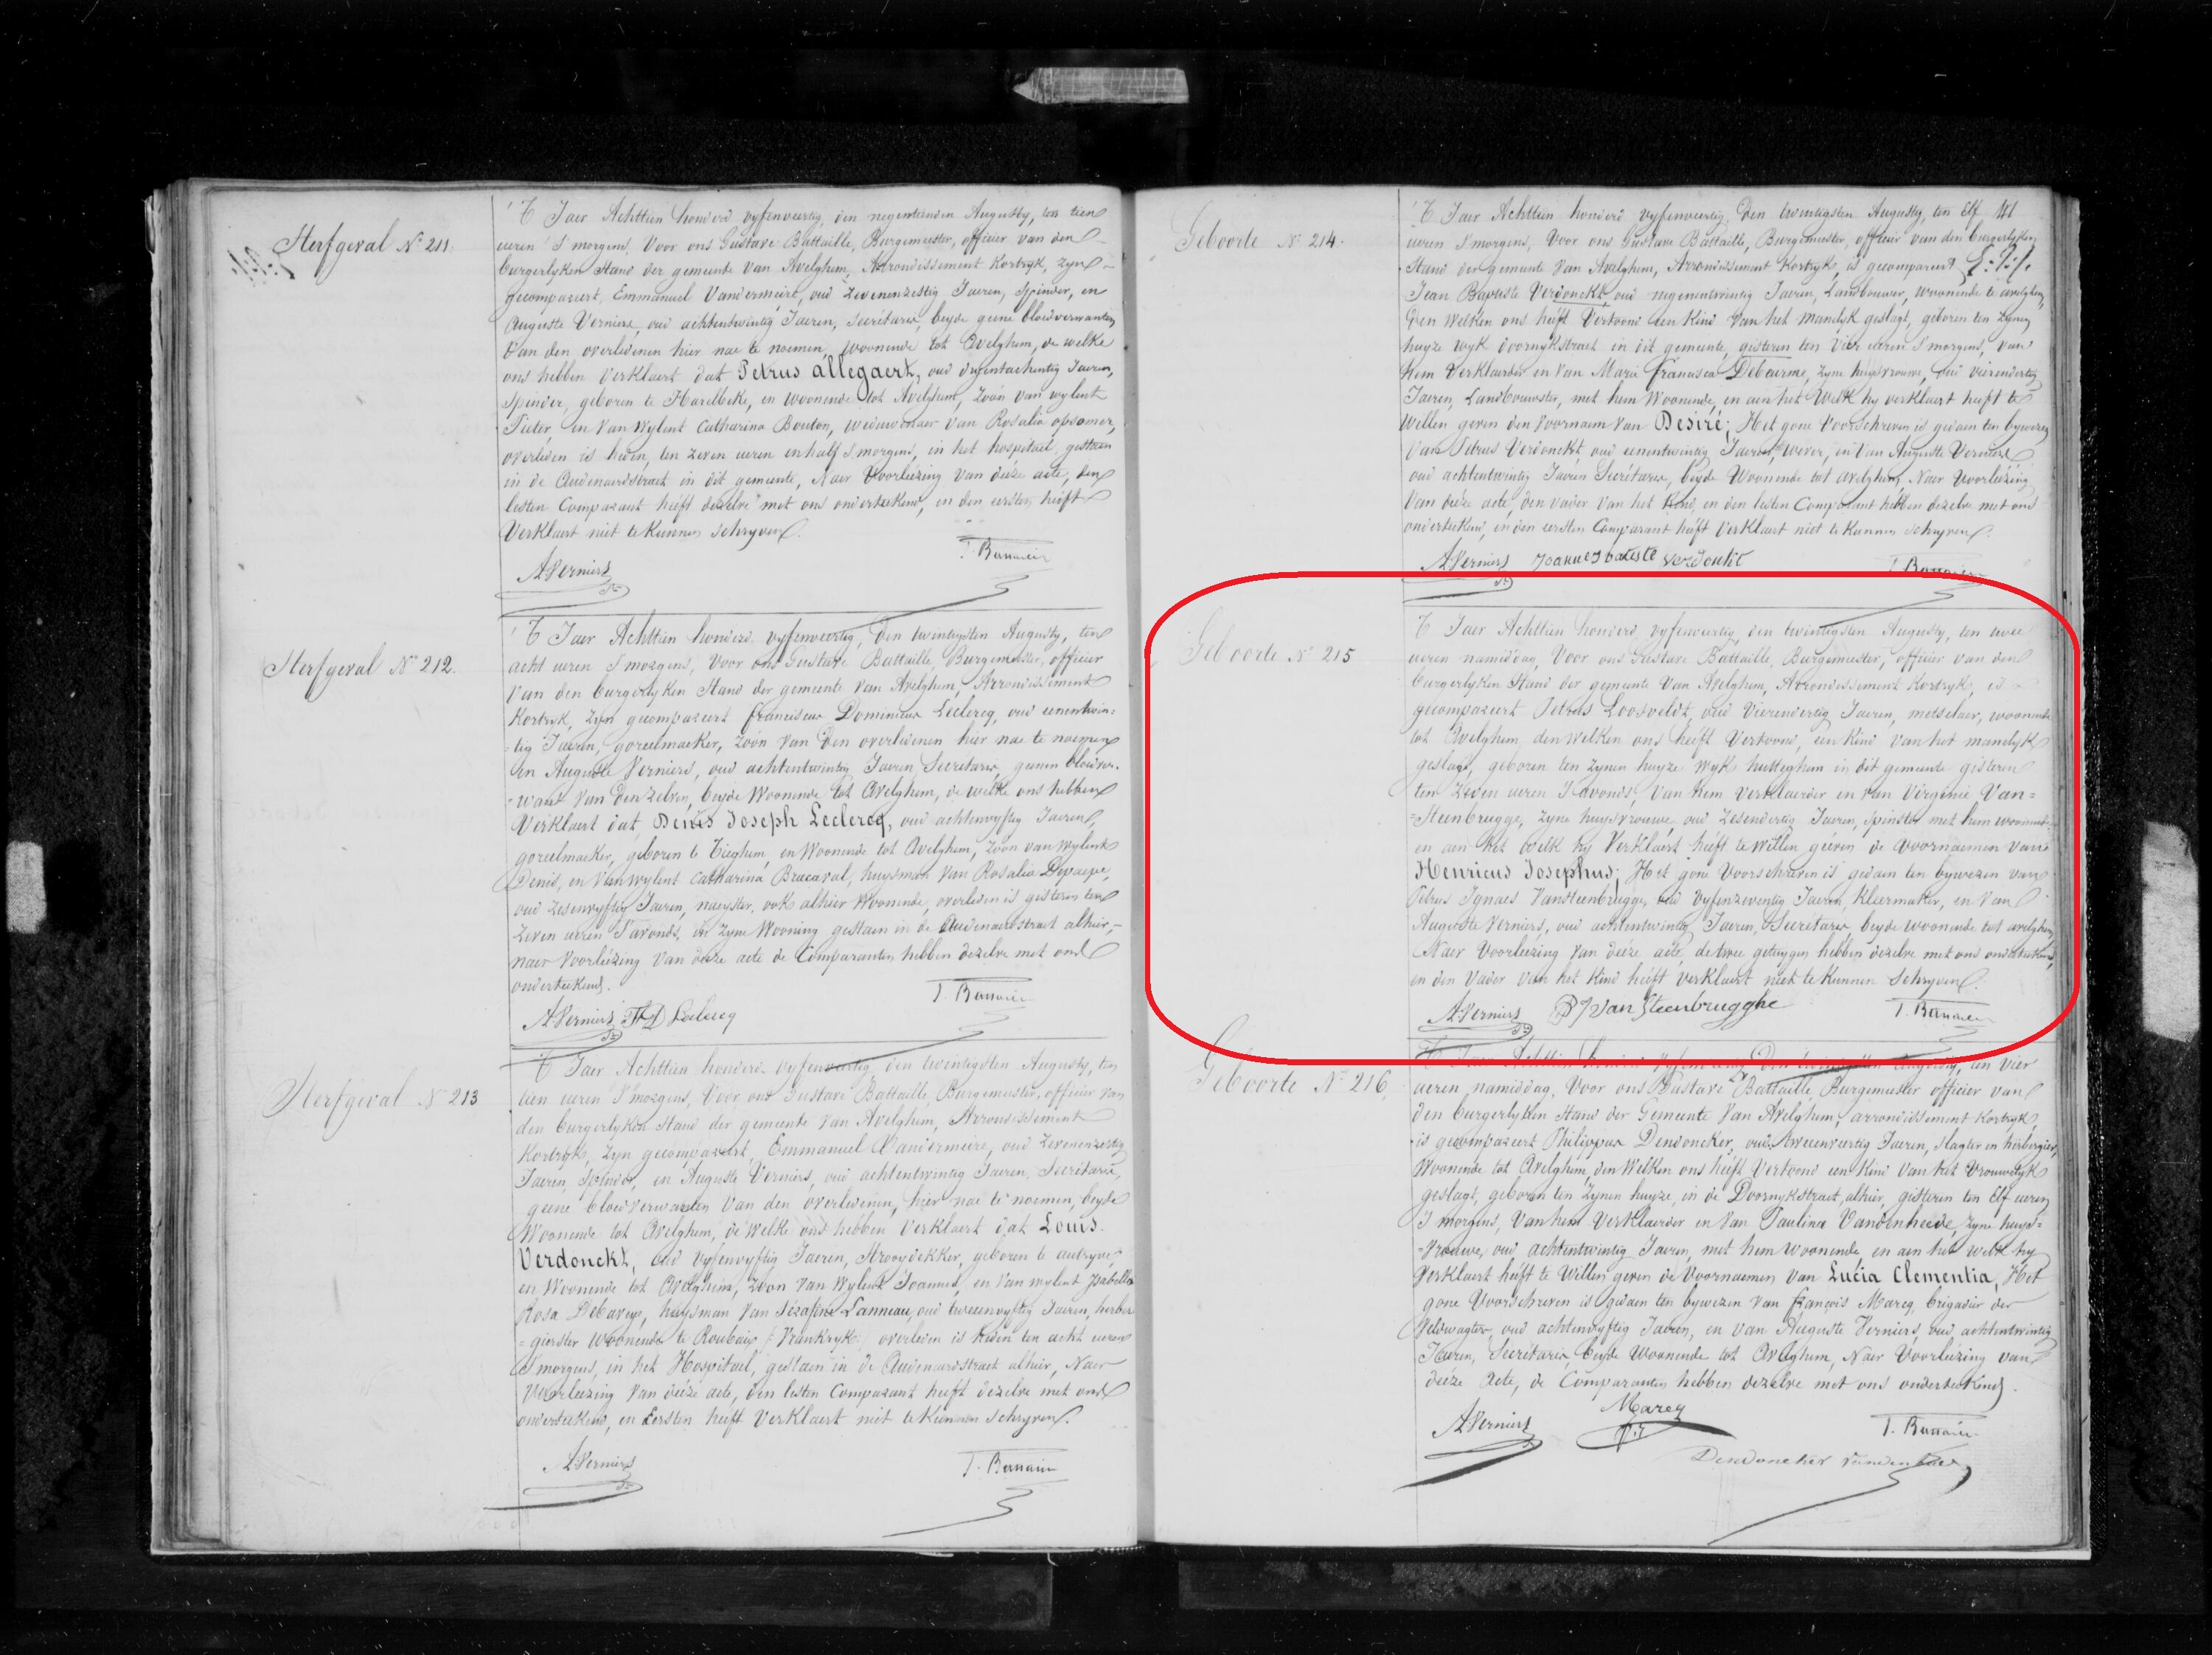 Sterfgeval N° 211.
'T Jaer Achttien honderd vyfenveertig, den negentienden Augusty, ten tien
uren S'morgens, Voor ons Gustave Battaille, Burgemeester, officier van den
burgerlyken Stand der gemeente van Avelghem, Arrondissement Kortryk, zyn
gecompareert, Emmanuel Vandermeire, oud zevenenzestig Jaeren, Spinder, en
Auguste Verniers, oud achtentwintig Jaeren, Secretaris, beyde geene bloedverwanten
Van den overledenen hier nae te noemen, woonende tot Avelghem, de welke
ons hebben Verklaert dat Petrus allegaert, oud dryentachentig Jaeren,
Spinder, geboren te Harelbeke, en woonende tot Avelghem, Zoon van wylent
Pieter, en van Wylent Catharina Bouton, weduwenaer van Rosalia opsomer,
overleden is heden, ten zeven uren en half S'morgens, in het hospitael, gestaen
in de Audenaerdstraet in dit gemeente, Naer Voorleezing van deéze acte, den
lesten Comparant heéft dezelve met ons onderteekend, en den eersten heéft
Verklaert niet te Kunnen schryven.
A. Verniers
Sterfgeval N° 212.
'T Jaer Achttien honderd vyfenveertig, Den twintigsten Augusty, ten
acht uren S'morgens, Voor ons Gustave Battaille, Burgemeester, officier
van den burgerlyken Stand der gemeente van Avelghem, Arrondissement
Kortryk, Zyn gecompareert franciscus Dominicus Leclercq, oud eenentwin=
=tig Jaeren, goreelmaeker, Zoon van Den overledenen hier nae te noemen
en Auguste Verniers, oud achtentwintig Jaeren Secretaris, geenen bloedver-
=want van Denzelven, beyde Woonende tot Avelghem, de welke ons hebben
Verklaert dat, Denis Joseph Leclercq, oud achtenvyftig Jaeren,
goreelmaeker, geboren te Tieghem, en Woonende tot Avelghem, Zoon van wylent
Denis, en van wylent Catharina Bracaval, huysman van Rosalia Depaepe,
oud zesenvyftig Jaeren, naeyster, ook alhier Woonende, overleden is gisteren ten
zeven uren S'avonds, in zyne Wooning gestaen in de Audenaerdstraet alhier,-
naer Voorleezing van deéze acte de Comparanten hebben dezelve met ons
onderteekend.
A. Verniers F D Leclercq
Sterfgeval N° 213
'T Jaer Achttien honderd vyfenveertig, den twintigsten Augusty, ten
tien uren S'morgens, Voor ons Gustave Battaille, Burgemeester, officier van
den burgerlyken Stand der gemeente van Avelghem, Arrondissement
Kortryk, Zyn gecompareert, Emmanuel Vandermeire, oud Zevenenzestig
Jaeren, Spinder, en Auguste Verniers, oud achtentwintig Jaeren, Secretaris,
geene bloedverwanten Van den overledenen, hier nae te noemen, beyde
Woonende tot Avelghem, de Welke ons hebben Verklaert dat Louis
Verdonckt, oud Vyfenvyftig Jaeren, Strooydekker, geboren te autryve,
en Woonende tot Avelghem, Zoon van Wylent Joannes, en van wylent Isabella
Rosa Debaveye, huysman van Serafine Lanneau, oud tweeenvyftig Jaeren, herber
=gierster Woonende te Roubaix (Vrankryk), overleden is heden ten acht uren
S'morgens, in het Hospitael, gestaen in de Audenaerdstraet alhier, Naer
Voorleezing van deéze acte, den lesten Comparant heeft dezelve met ons
onderteekend, en Eersten heeft Verklaert niet te Kunnen schryven.
A. Verniers
Geboorte N° 214.
'T Jaer Achttien honderd vyfenveertig, Den twintigsten Augusty, ten Elf
uren S'morgens, Voor ons Gustave Battaille, Burgemeester, officier van den burgerlyken
Stand der gemeente van Avelghem, Arrondissement Kortryk, is gecompareert
Jean Baptiste Verdonckt, oud negenentwintig Jaeren, Landbouwer, woonende te avelghem,
Den Welken ons heéft Vertoond een Kind van het Manelyk geslagt, geboren ten zynen
huyze wyk doornykstraet in dit gemeente, gisteren ten Vier uren S'morgens, van
Hem Verklaerder en van Marie francisca Debeurme, zyne huysvrouwe, oud vierendertig
Jaeren, Landbouwster, met hem Woonende, en aen het Welk hy verklaert heéft te
Willen geven den Voornaem van Désiré; Het gone Voorschreven is gedaen ten bywezen
Van Petrus Verdonckt, oud eenentwintig Jaeren, Wever, en Van Auguste Verniers
oud achtentwintig Jaeren Secretaris, beyde Woonende tot avelghem, Naer Voorleézing
Van deéze acte, den vader van het Kind, en den lesten Comparant hebben dezelve met ons
onderteekend, en den eersten Comparant heéft Verklaert niet te Kunnen schryven.
A. Verniers Joannes batiste verdonkt
Geboorte N° 215
'T Jaer Achttien honderd vyfenveertig, den twintigsten Augusty, ten twee
uren namiddag, Voor ons Gustave Battaille, Burgemeester, officier van den
burgerlyken Stand der gemeente van Avelghem, Arrondissement Kortryk, is
gecompareert Petrus Loosveldt, oud Vierendertig Jaeren, metselaer, woonende
tot Avelghem, den welken ons heéft Vertoond, een Kind van het manelyk
geslagt, geboren ten zynen huyze wyk hutteghem in dit gemeente gisteren
ten zeven uren S'avonds, van hem verklaerder en van Virginie Van=
=Steenbrugge, zyne huysvrouwe, oud Zesendertig Jaeren, Spinster met hem woonende
en aen het Welk hy Verklaert heéft te Willen geéven de Voornaemen van
Henricus Josephus; Het gone Voorschreven is gedaen ten bywezen van
Petrus Ignaes Vansteenbrugge, oud Vyfenzeventig Jaeren, Kleermaker, en Van
Auguste Verniers, oud achtentwintig Jaeren, Secretaris, beyde woonende tot avelghem,
Naer Voorleezing van deéze acte, de twee getuygen hebben dezelve met ons onderteekend,
en den Vader van het Kind heéft verklaert niet te Kunnen Schryven.
A. Verniers P J Van Steenbrugghe
Geboorte N° 216
'T Jaer Achttien honderd vyfenveertig, Den twintigsten Augusty, ten vier
uren namiddag, Voor ons Gustave Battaille, Burgemeester officier van
den burgerlyken Stand der Gemeente van Avelghem, arrondissement Kortryk,
is gecompareert Philippus Dendoncker, oud tweeenveertig Jaeren, slagter en herbergier,
Woonende tot Avelghem, den Welken ons heéft Vertoond een Kind van het Vrouwelyk
geslagt, geboren ten zynen huyze, in de Doornykstraet, alhier, gisteren ten Elf uren
S'morgens, Van hem Verklaerder en Van Paulina Vandenheede, zyne huys=
=vrouwe, oud, achtentwintig Jaeren, met hem Woonende, en aen het welk hy
Verklaert heéft te Willen geven de Voornaemen van Lucia Clementia, Het
gone Voorschreven is gedaen ten bywezen van françois Marcq, brigadier der
Veldwagter, oud achtenvyftig Jaeren, en van Auguste Verniers, oud achtentwintig
Jaeren, Secretaris, beyde Woonende tot Avelghem, Naer Voorleezing van
deéze acte, de Comparanten hebben dezelve met ons onderteekend.
A. Verniers Marcq